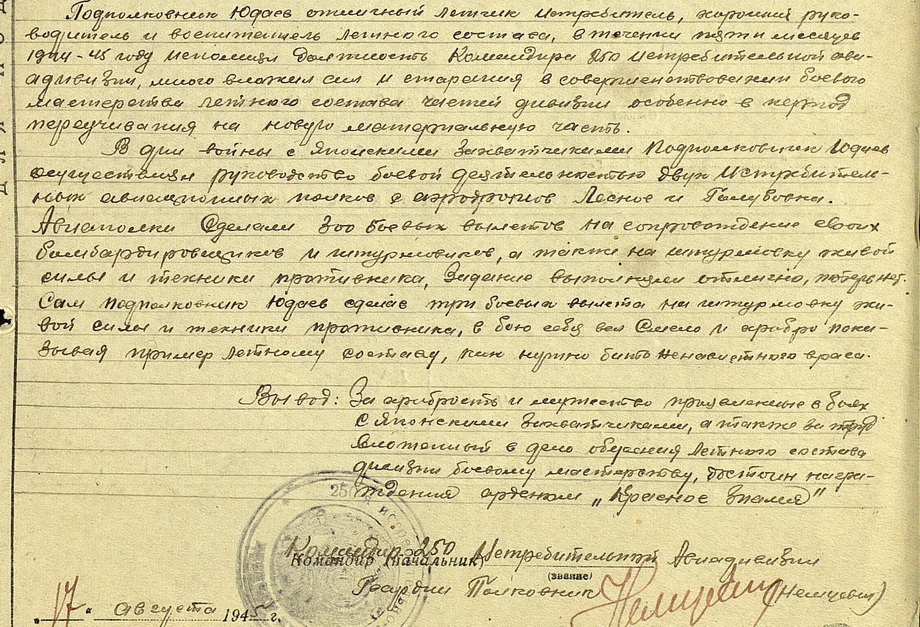 Подполковник Юдаев отличный летчик истребитель, хороший руко-
водитель и воспитатель летного состава, в течении пяти месяцев
1944-45 году исполнял должность Командира 250 истребительной ави-
адивизии, много вложил сил и старания в совершенствовании боевого
мастерства летного состава частей дивизии особенно в период
переучивания на новую материальную часть.
В дни войны с Японскими захватчиками Подполковник Юдаев
осуществлял руководство боевой деятельностью двух Истребитель-
ных авиационных полков с аэродромов Лесное и Голубовка.
Авиаполки сделали 300 боевых вылетов на сопровождение своих
бомбардировщиков и штурмовиков, а также на штурмовку живой
силы и техники противника, задание выполняли отлично, потерь нет.
Сам подполковник Юдаев сделав три боевых вылета на штурмовку жи-
вой силы и техники противника, в бою себя вел смело и храбро пока-
зывая пример летному составу, как нужно бить ненавистного врага.
Вывод: За храбрость и мужество проявленные в боях
с Японскими захватчиками, а также за труд
вложенный в дело обучения летного состава
дивизии боевому мастерству, достоин награ-
ждения орденом „Красное знамя"
Командир 250 Истребительной Авиадивизии
Командир (начальник)
(звание)
Гвардии Полковник (Немцевич)
„17" Августа 194 г.
250